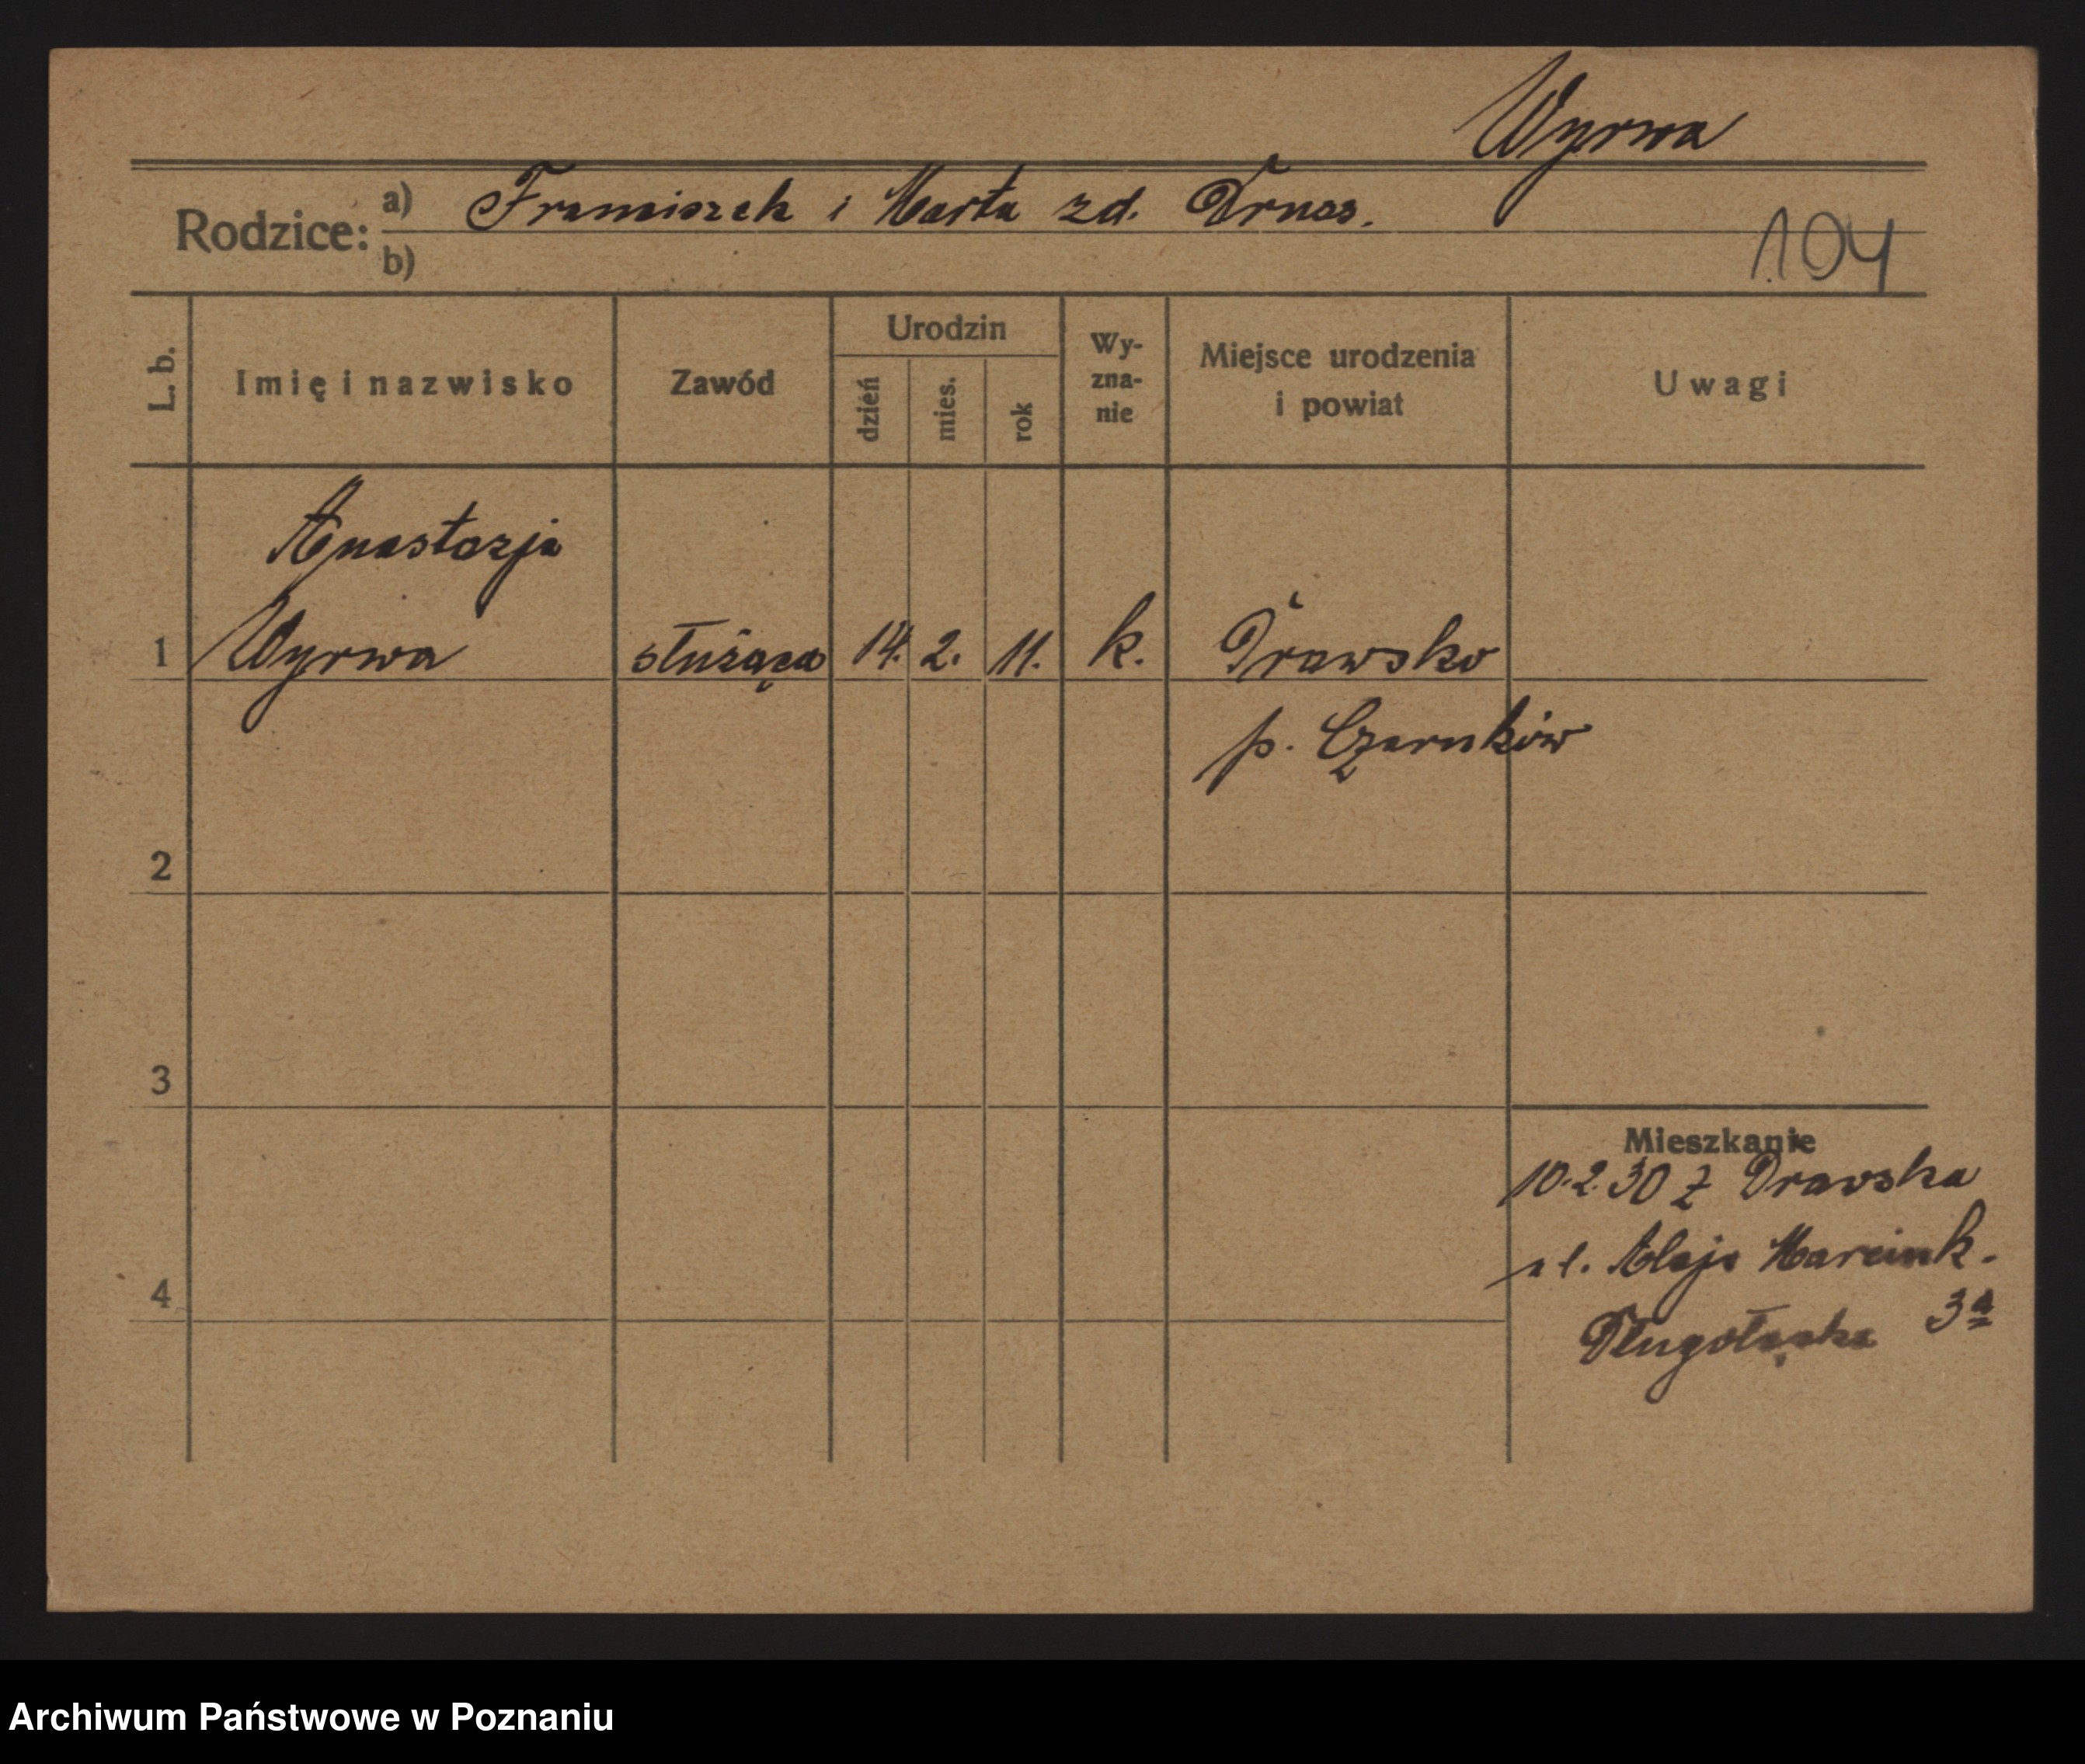 Wyrwa
Rodzice: a) Franciszek i Marta zd. Druos.
b)
104
L. b. Imię i nazwisko Zawód Urodzin dzień mies. rok Wyzna-nie Miejsce urodzenia i powiat Uwagi
Anastazja
1 Wyrwa służąca 14. 2. 11. k. Drawsko
p. Czarnków
2
3
Mieszkanie
10.2.30 z Drawska
ul. Aleje Marcink.
4
3a
Długołęcka
Archiwum Państwowe w Poznaniu